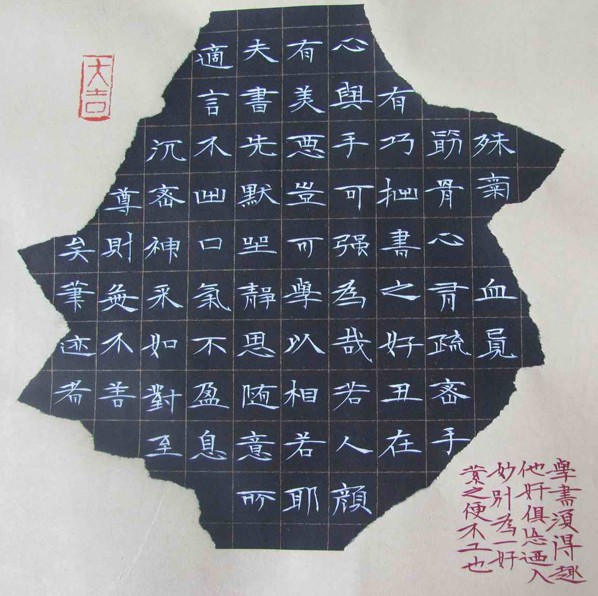 殊稟血員
筋骨心有疏密手
有巧拙書之好丑在
心與手可强為哉若人顔
有美惡豈可學以相若耶
夫書先默坐静思随意所
適言不出口氣不盈息
沉密神采如對至
尊則無不善
矣筆迹者
大吉
學書須得趣
他好俱忘迺入
妙別為一好
縈之便不工也